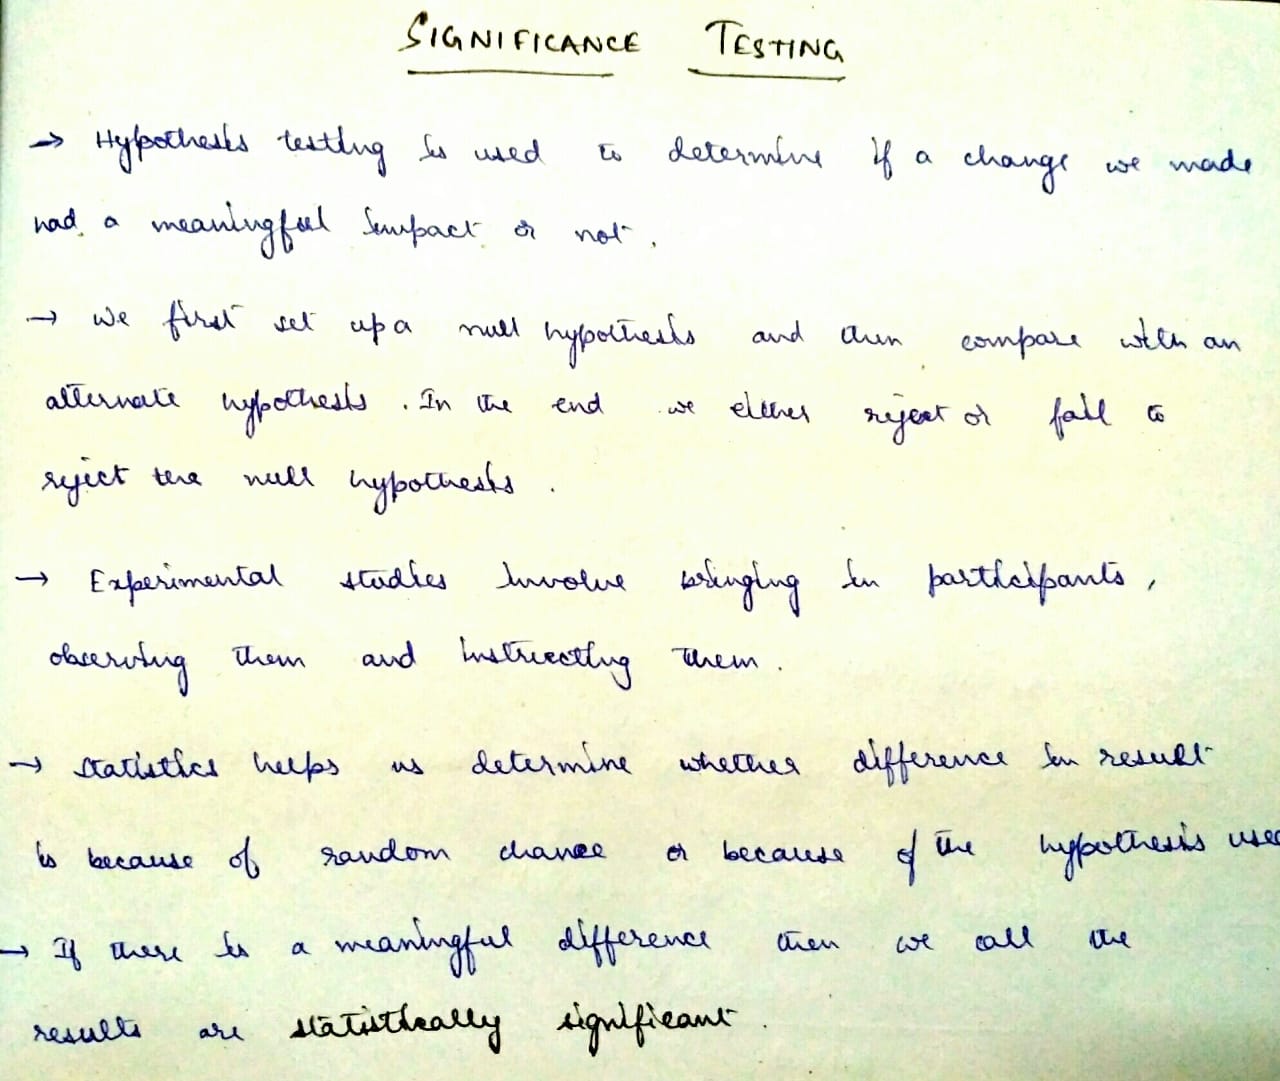 SIGNIFICANCE TESTING
→ Hypothesis testing is used to determine if a change we made
had a meaningful impact or not.
→ We first set up a null hypothesis and then compare with an
alternate hypothesis. In the end we either reject or fail to
reject the null hypothesis.
→ Experimental studies involve bringing in participants,
observing them and instructing them.
→ Statistics helps us determine whether difference in result
is because of random chance or because of the hypothesis used
→ If there is a meaningful difference then we call the
results are statistically significant.